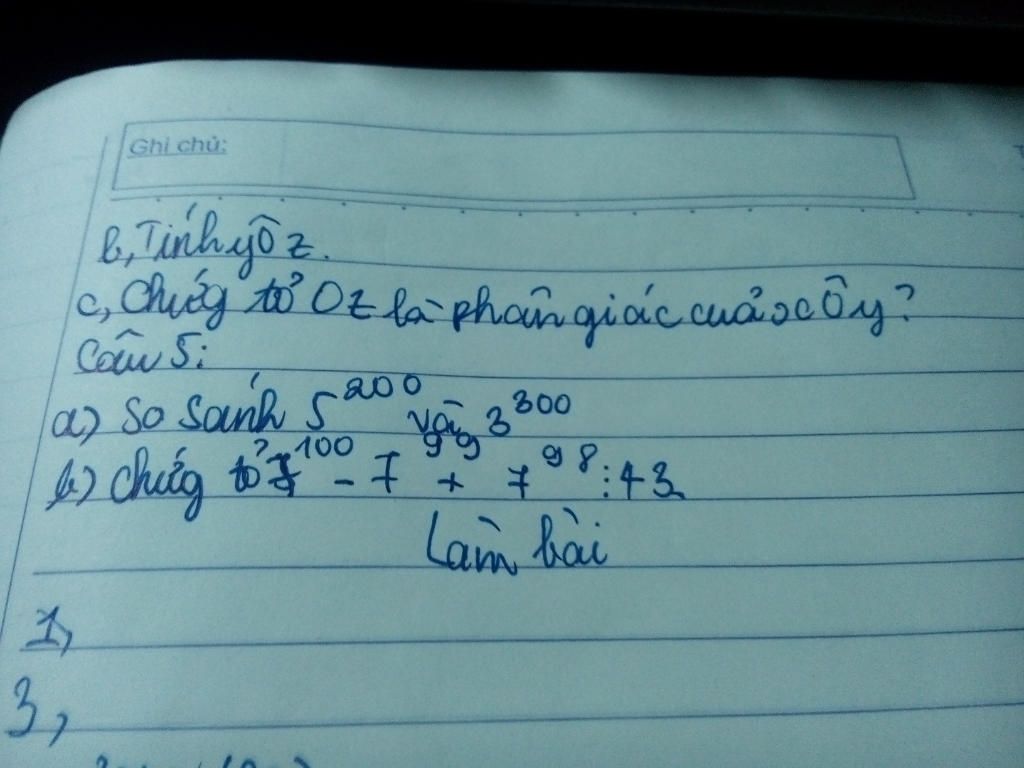 Ghi chú:
b, Tính yÔz.
c, Chứg tỏ Oz là phân giác của xÔy?
Câu 5:
a) So sánh 5^200 và 3^300
b) Chứg tỏ 7^100 - 7^99 + 7^98 ⋮ 43
Làm bài
1,
3,